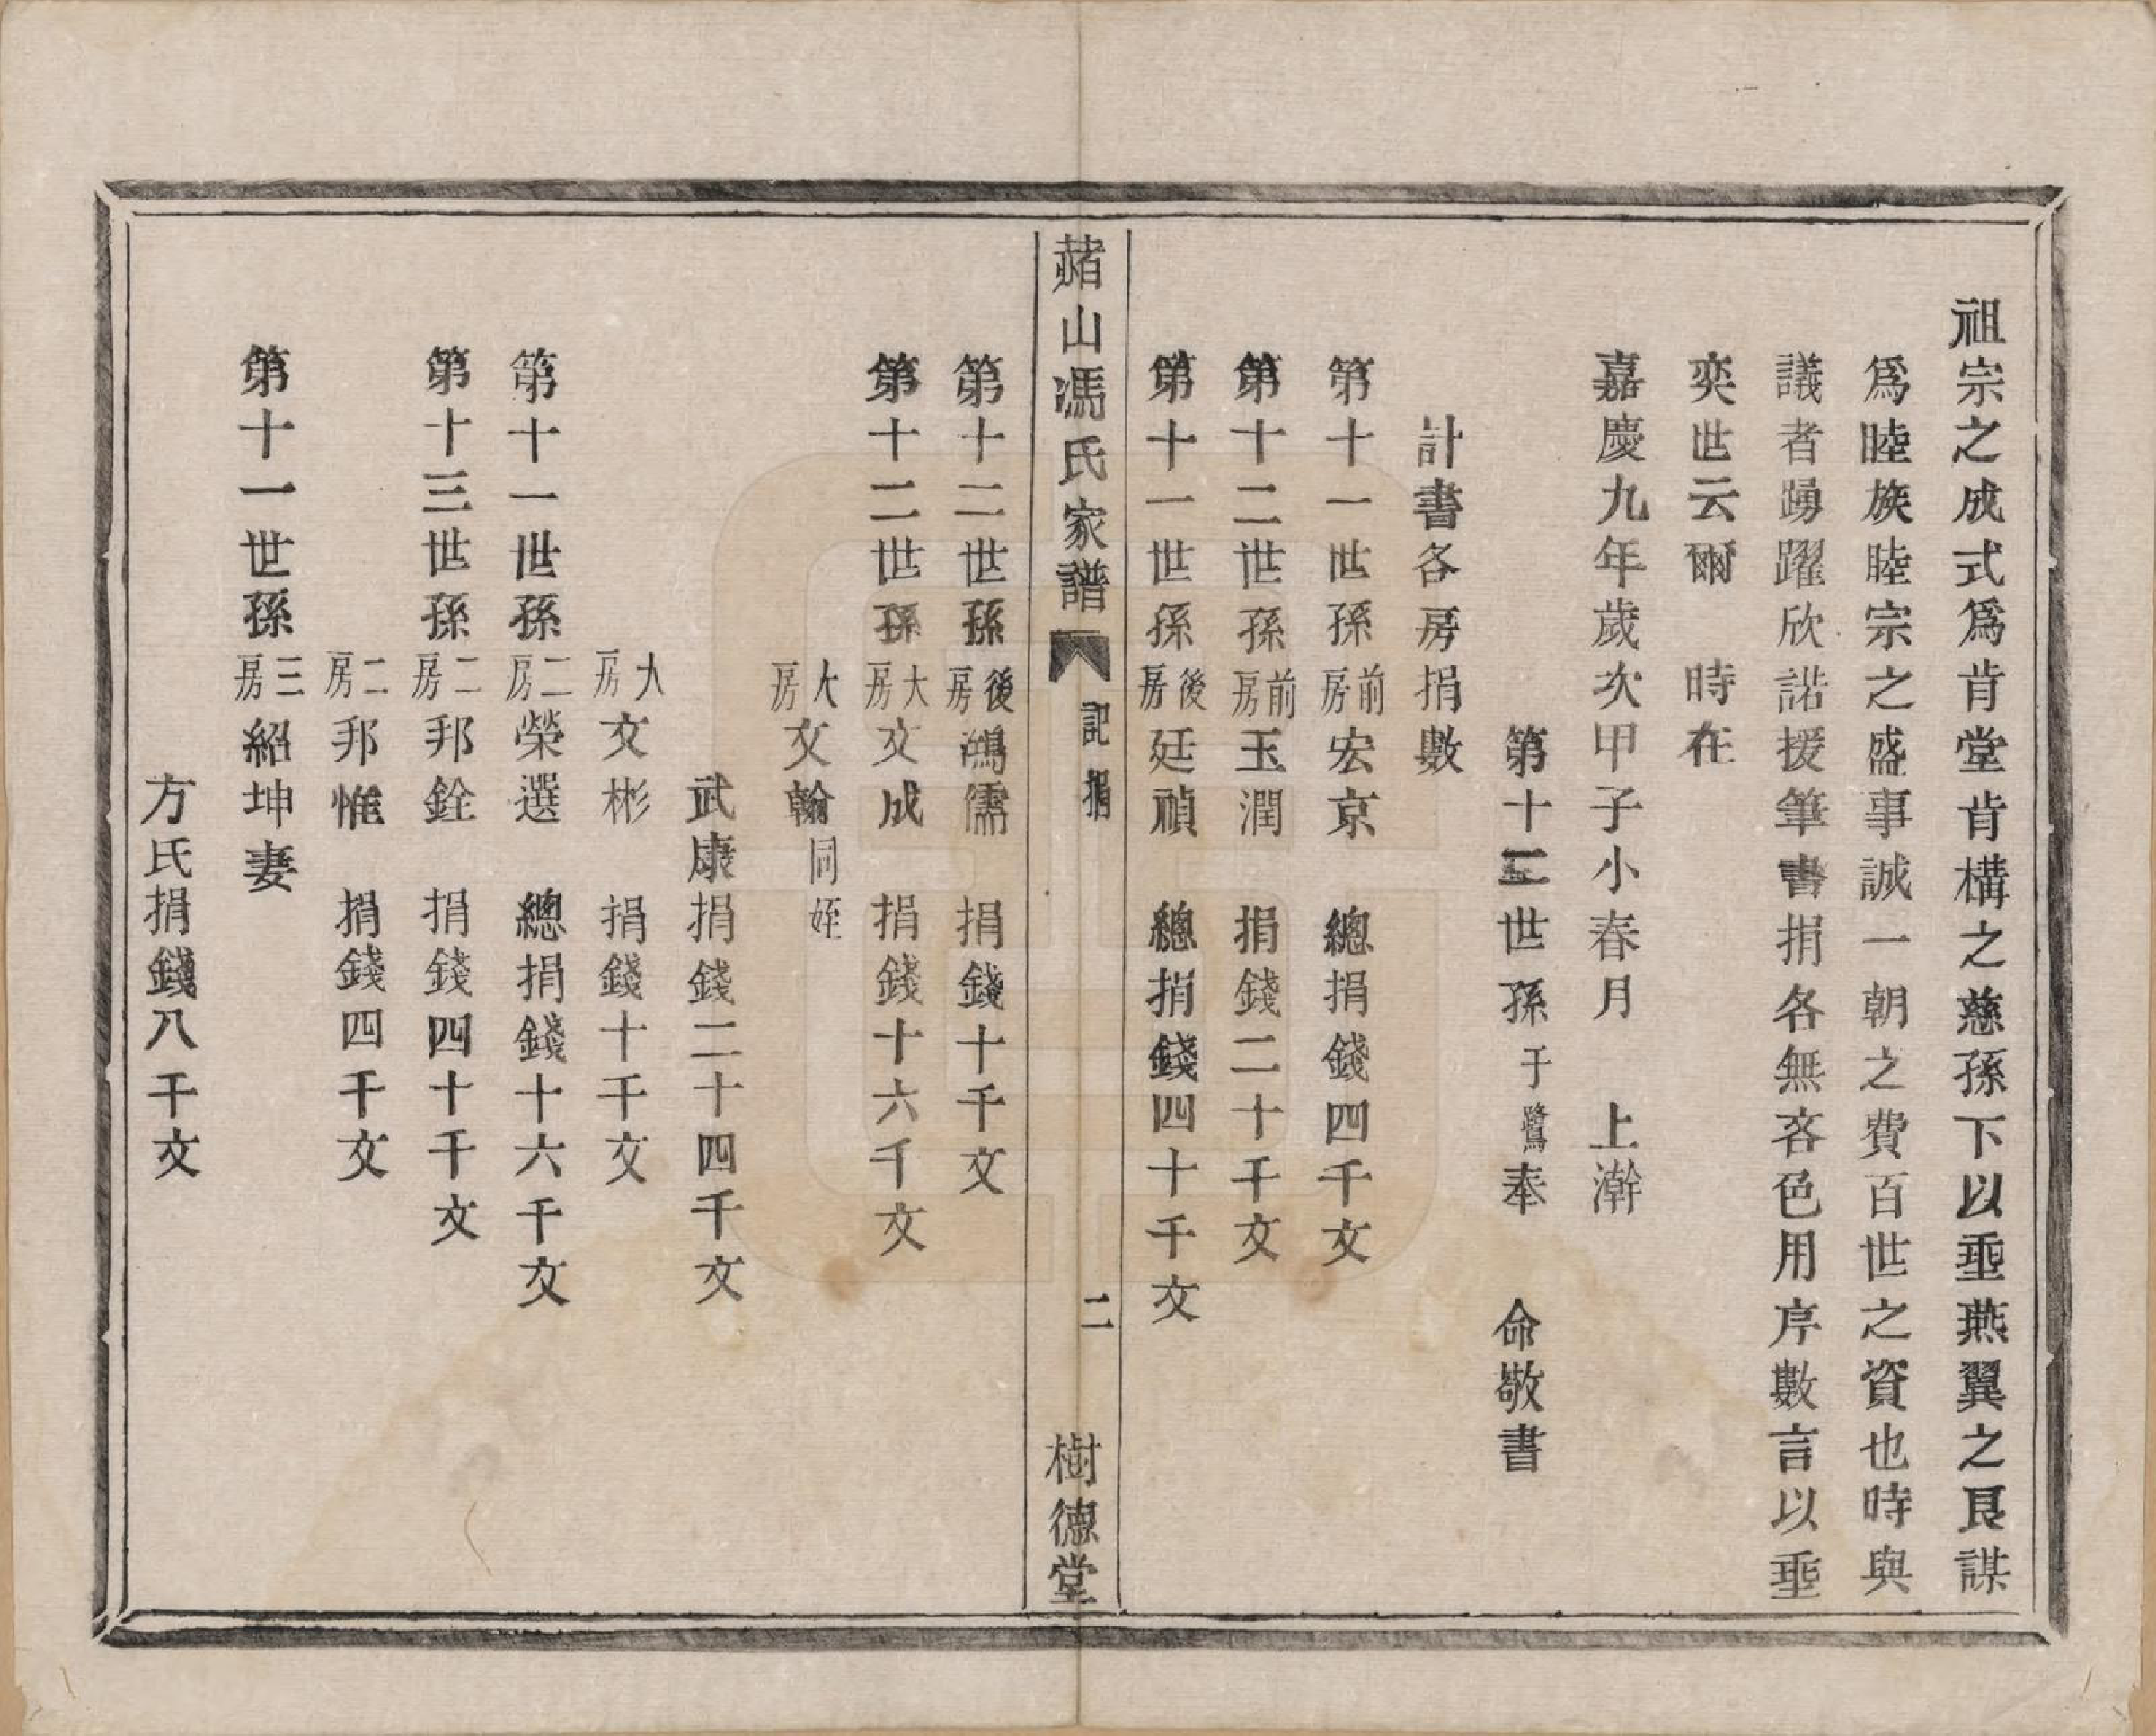 祖宗之成式爲肯堂肯構之慈孫下以垂燕翼之良謀
爲睦族睦宗之盛事誠一朝之費百世之資也時與
議者踴躍欣諾援筆書捐各無吝色用序數言以垂
奕世云爾　時在
嘉慶九年歲次甲子小春月　上澣
第十三世孫于鷺奉　命敬書
計書各房捐數
第十一世孫前房宏京　總捐錢四千文
第十二世孫前房玉潤　捐錢二十千文
第十一世孫後房廷禎　總捐錢四十千文
赭山馮氏家譜　記捐　二　樹德堂
第十二世孫後房鴻儒　捐錢十千文
第十二世孫大房文成　捐錢十六千文
大房文翰同姪
武康捐錢二十四千文
大房文彬　捐錢十千文
第十一世孫二房榮選　總捐錢十六千文
第十三世孫二房邦銓　捐錢四十千文
二房邦惟　捐錢四千文
第十一世孫三房紹坤妻
方氏捐錢八千文